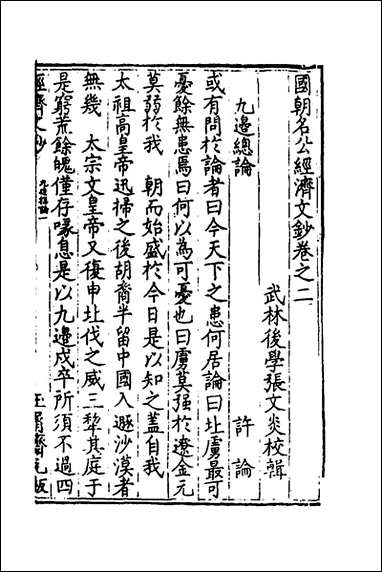 國朝名公經濟文鈔卷之二
武林後學張文炎校輯
九邊總論 許論
或有問於論者曰今天下之患何居論曰北虜最可
憂餘無患焉曰何以為可憂也曰虜莫强於遼金元
莫弱於我 朝而始盛於今日是以知之蓋自我
太祖高皇帝迅掃之後胡裔半留中國入遯沙漠者
無幾 太宗文皇帝又復申北伐之威三犂其庭于
是窮荒餘魄僅存喙息是以九邊戍卒所須不過四
經濟文鈔
九邊總論一
玉屑齋